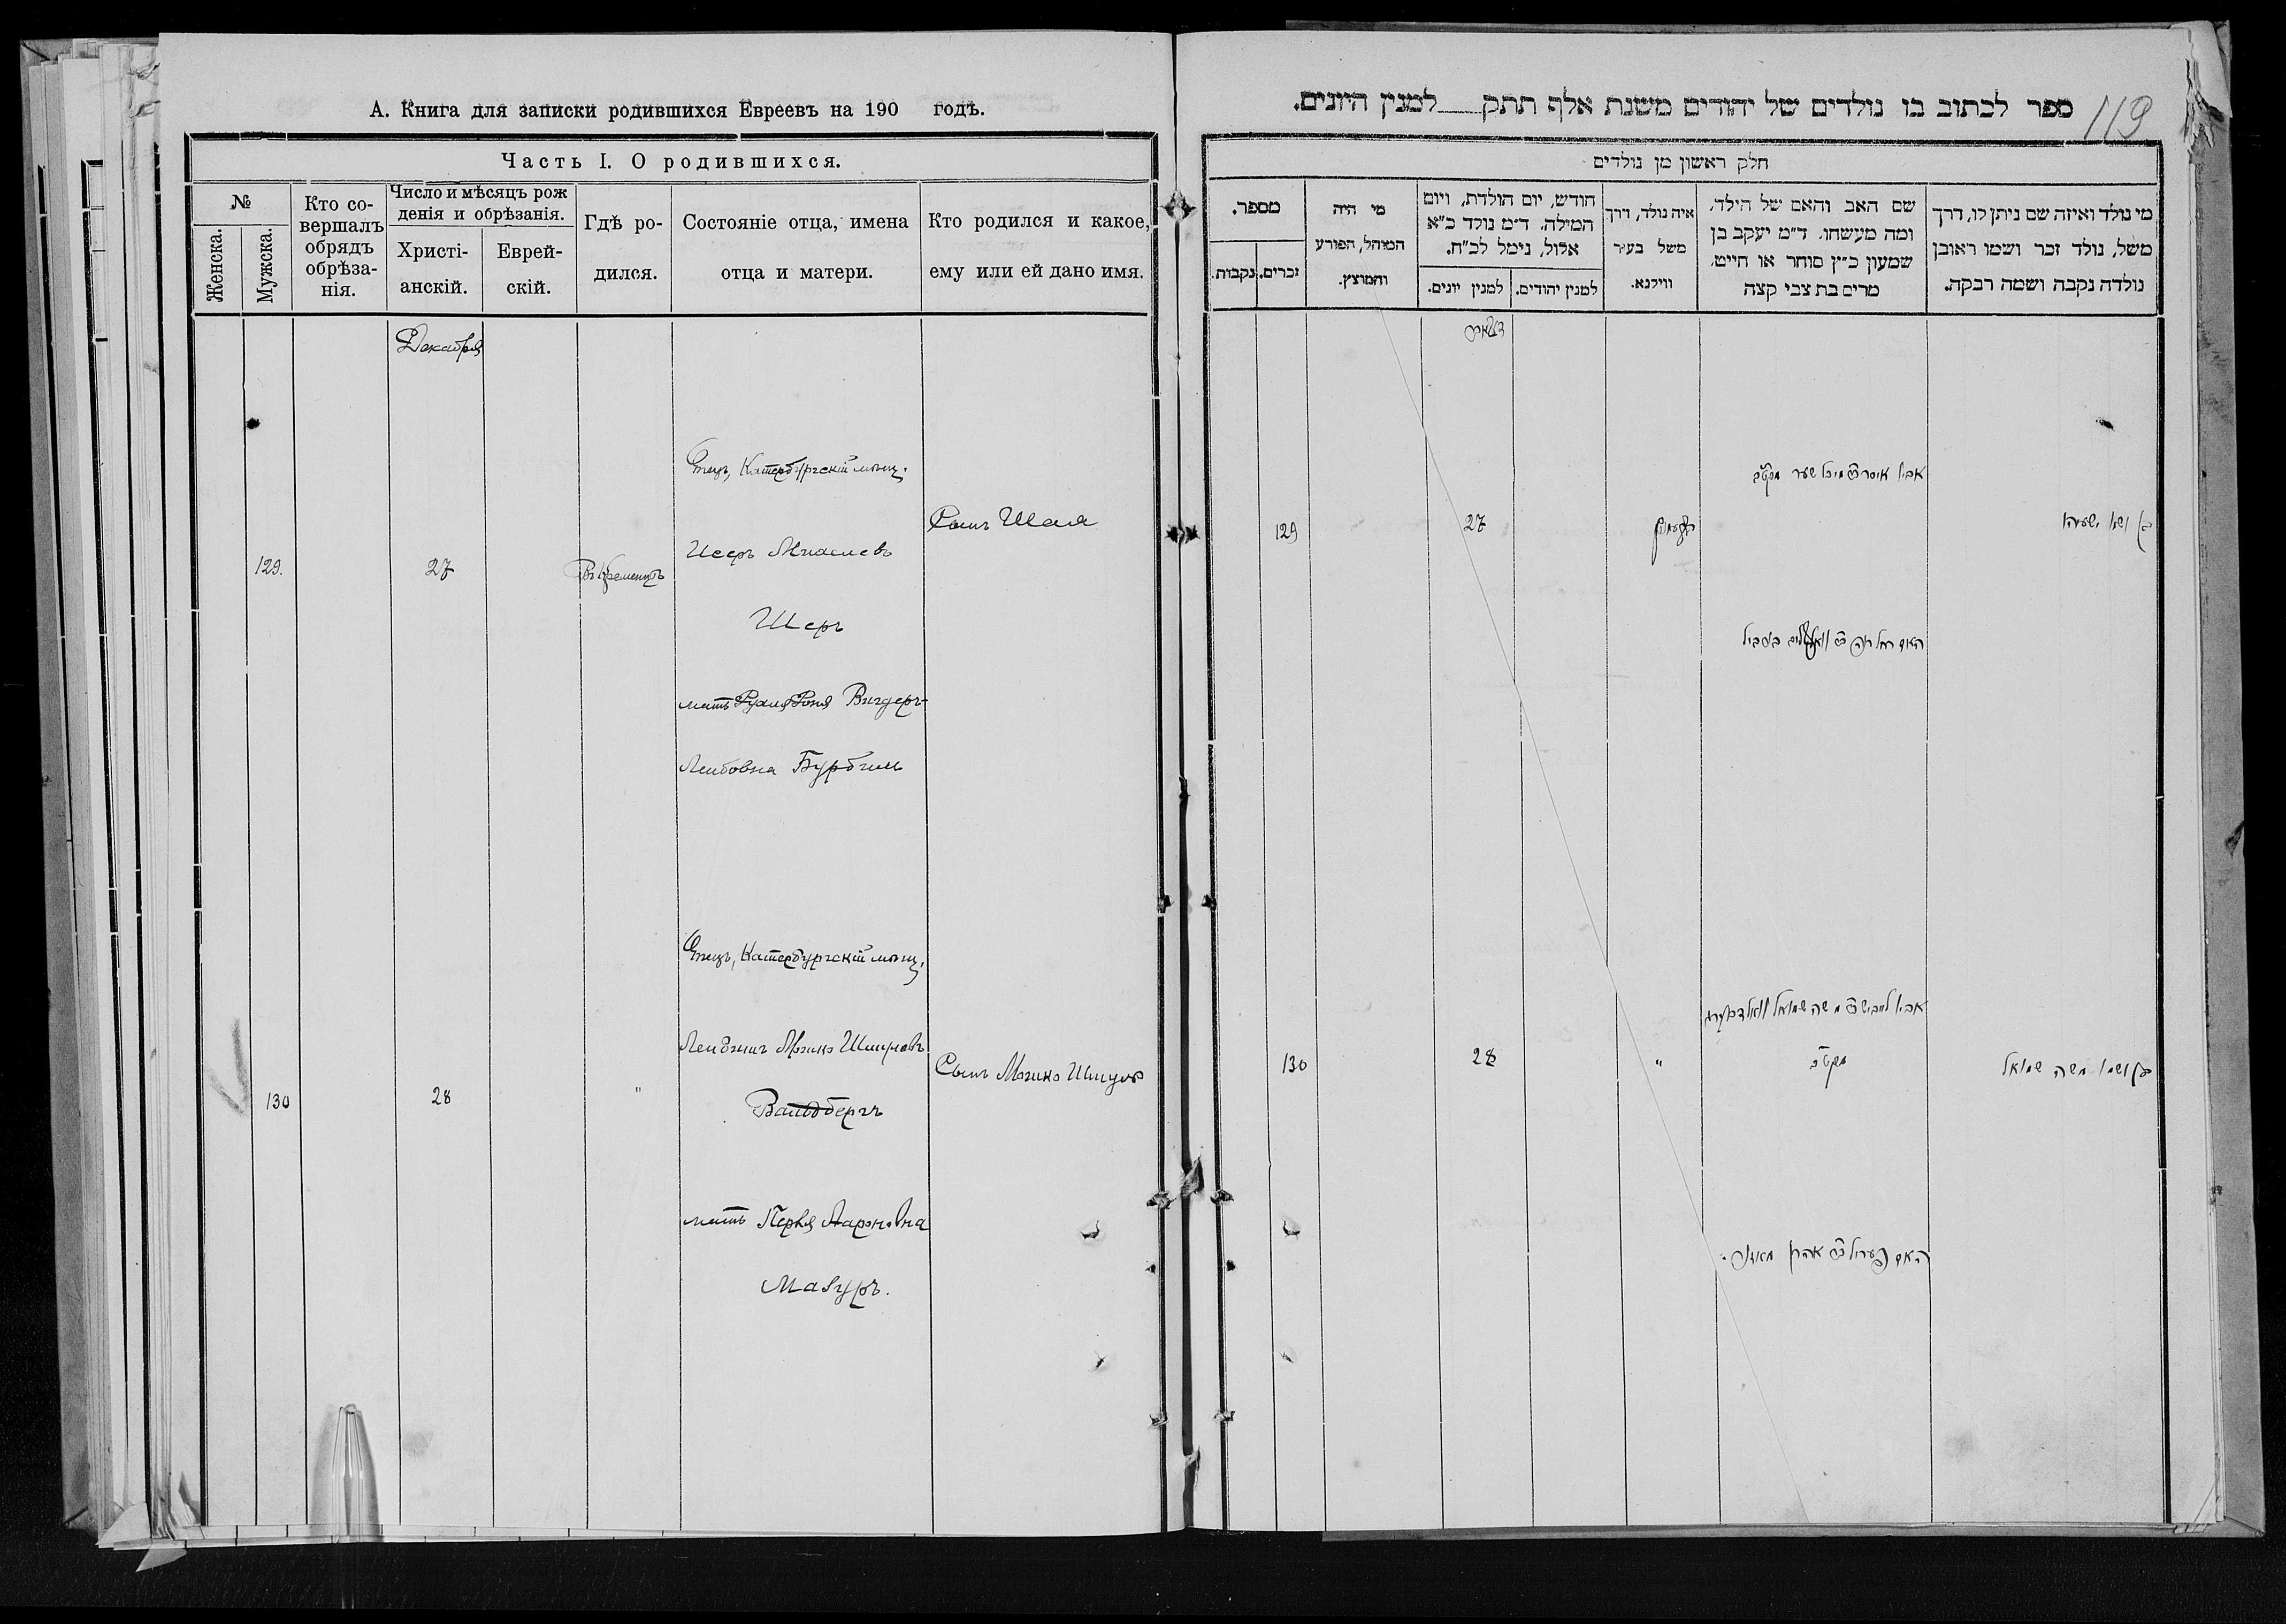 А. Книга для записки родившихся Евреевъ на 190 годъ.
Часть I. О родившихся.
№
Женска.
Мужска.
Кто со-
вершалъ
обрядъ
обрѣза-
нія.
Число и мѣсяцъ рож
денія и обрѣзанія.
Христі-
анскій.
Еврей-
скій.
Гдѣ ро-
дился.
Состояніе отца, имена
отца и матери.
Кто родился и какое,
ему или ей дано имя.
Декабря
129.
27
Въ Кременцѣ
Отецъ, Катербургскій мѣщ.
Исеръ Михелевъ
Шеръ
мать Рухля Роня Вигдеръ-
Лейбовна Бурбиль
Сынъ Шая
130
28
"
Отецъ, Катербургскій мѣщ.
Лейбишъ Мошко Шмулевъ
Вальдбергъ
мать Перля Аароновна
Мазуръ.
Сынъ Мошко Шмуль
119
ספר לכתוב בו נולדים של יהודים משנת אלף תתק למנין היונים.
חלק ראשון מן נולדים
מספר.
נקבות.
זכרים.
מי היה
המוהל, הפורע
והמוצץ.
חודש, יום הולדת, ויום
המילה. ד״מ נולד כ״א
אלול, נימל לכ״ח.
למנין יונים.
למנין יהודים.
איה נולד, דרך
משל בעיר
ווילנא.
שם האב והאם של הילד,
ומה מעשהו. ד״מ יעקב בן
שמעון כ״ץ סוחר או חייט,
מרים בת צבי קצה
מי נולד ואיזה שם ניתן לו, דרך
משל, נולד זכר ושמו ראובן
נולדה נקבה ושמה רבקה.
129
27
אביו איסר ב״ר מיכל שער
בן ושמו ישעיהו
האם רחל
130
28
"
אביו לייביש ב״ר משה שמואל וואלדבערג
בן ושמו משה שמואל
האם פערל ב״ר אהרן מאזור